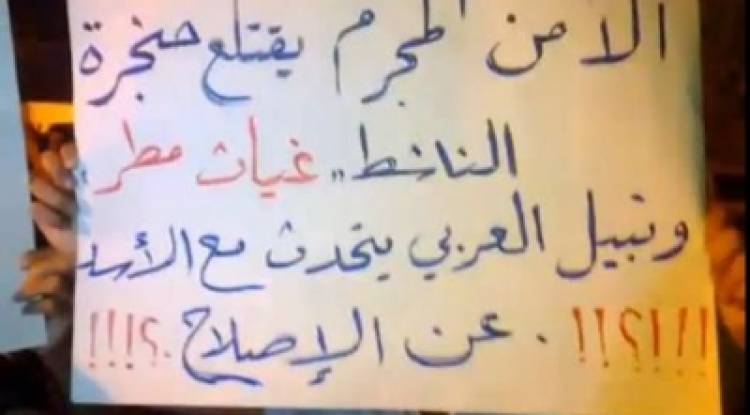 الأمن المجرم يقتلع حنجرة
الناشط ,, غياث مطر ,,
ونبيل العربي يتحدث مع الأسد
!!!؟!! . عن الإصلاح .؟!!!